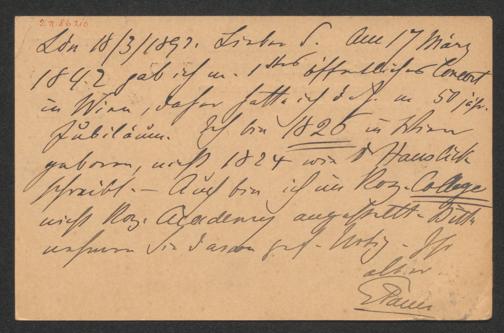 Ldn 18/3/1892. Lieber S. Am 17 März
1842 gab ich m. 1stes öffentliches Concert
in Wien, daher hatte ich d. J. m 50 jähr.
Jubiläum. Ich bin 1826 in Wien
geboren, nicht 1824 wie Dr Hanslick
schreibt. – Auch bin ich im Roy. College
nicht Roy. Academy angestellt. – Bitte
nehmen Sie davon gef. Notiz –
alter
E Pauer